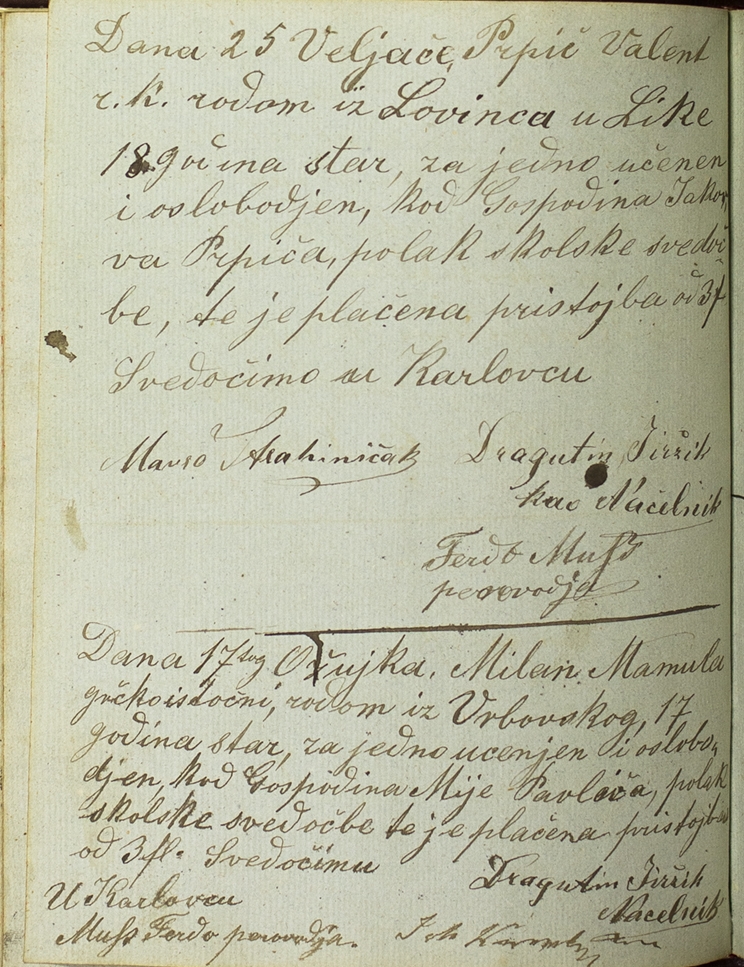 Dana 25 Veljače, Prpič Valent
r. k. rodom iz Lovinca u Like
18 godina star, za jedno učenen
i oslobodjen, kod Gospodina Jako,,
va Prpiča, polak skolske svedoč
be, te je plačena pristojba od 3f
Svedočimo u Karlovcu
Dragutin Jiršik
kao Načelnik
Ferdo Muhs
perovodja
Dana 17tog Ožujka. Milan Mamula
grčkoistočni, rodom iz Vrbovskog, 17
godina star, za jedno ucenjen i oslobo,,
djen, kod Gospodina Mije Pavlića, polak
skolske svedočbe te je plačena pristojba
od 3 fl. Svedočimu
Dragutin Jiršik
U Karlovcu
Načelnik
Muhs Ferdo perovodja.